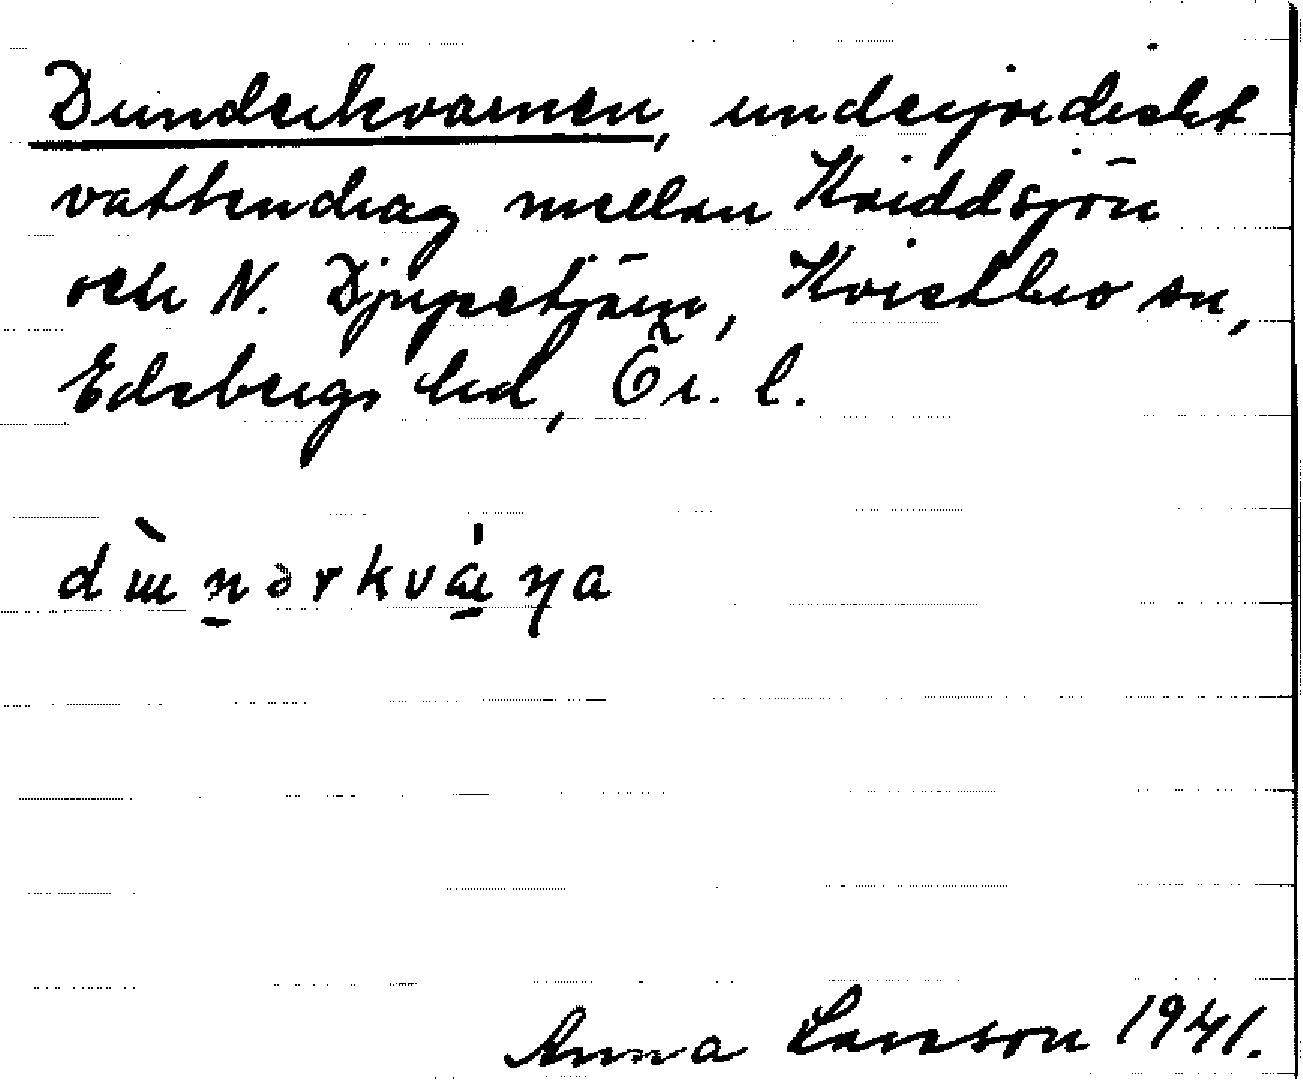 Dunderkvarnen, underjordiskt
vattendrag mellan Kviddsjön
och N. Djupetjärn, Kvistbro sn,
Edsbergs hd, Ör. l.
Anna Larsson 1941.